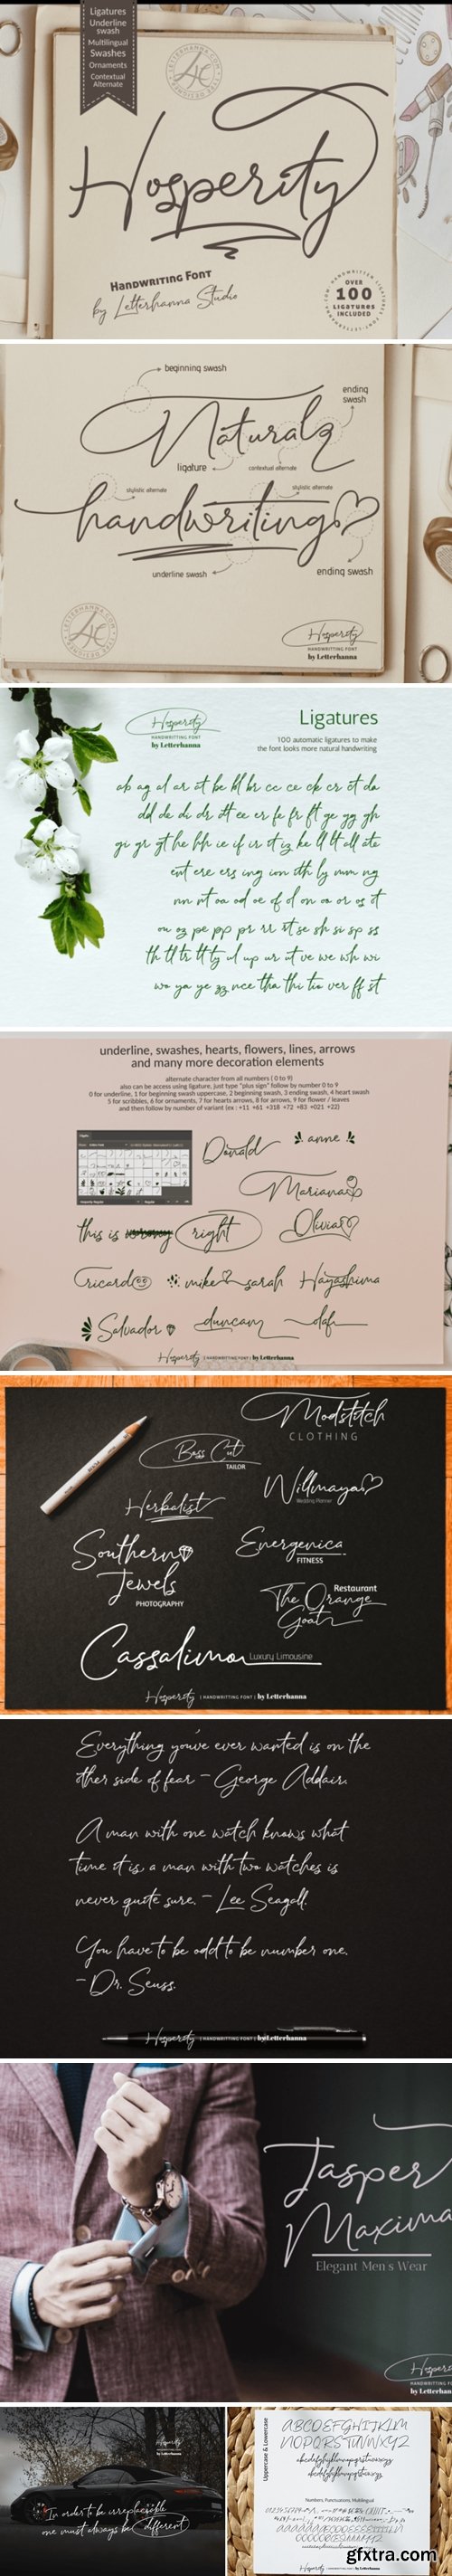 Ligatures
Underline
swash
Multilingual
Swashes
Ornaments
Contextual
Alternate
Hosperity
Handwriting Font
by Letterhanna Studio
OVER
100
LIGATURES
INCLUDED
beginning swash
ending
swash
Natural
ligature
contextual alternate
stylistic alternate
stylistic alternate
handwriting
underline swash
ending swash
Hosperity
HANDWRITTING FONT
by Letterhanna
Hosperity
HANDWRITTING FONT
by Letterhanna
Ligatures
100 automatic ligatures to make
the font looks more natural handwriting
ab ag al ar at be bl br cc ce ck cr ct da
dd de di ds dt ee er fe fr ft ge gg gh
gi gr gt he hh ie if ir it iz ke ll lt all ate
ent ere ers ing ion ith ly mm ng
nn nt oa od oe of ol on oo or os ot
ou oz pe pp pr rr rt se sh si sp ss
th tl tr tt ty ul up ur ut ve we wh wi
wo ya ye zz nce tha thi tio ver ff st
underline, swashes, hearts, flowers, lines, arrows
and many more decoration elements
alternate character from all numbers ( 0 to 9)
also can be access using ligature, just type "plus sign" follow by number 0 to 9
0 for underline, 1 for beginning swash uppercase, 2 beginning swash, 3 ending swash, 4 heart swash
5 for scribbles, 6 for ornaments, 7 for hearts arrows, 8 for arrows, 9 for flower / leaves
and then follow by number of variant (ex : +11 +61 +318 +72 +83 +021 +22)
Donald
anne
Mariana
this is wrong right
Olivia
Ricardo
mike sarah
Hayashima
Salvador
duncan
olaf
Hosperity | HANDWRITTING FONT | by Letterhanna
Modstitch
CLOTHING
Boss Cut
TAILOR
Willmaya
Wedding Planner
Herbalist
Southern
Jewels
PHOTOGRAPHY
Energenica
FITNESS
Restaurant
The Orange
Goat
Cassalimo
Luxury Limousine
Hosperity | HANDWRITTING FONT | by Letterhanna
Everything you've ever wanted is on the
other side of fear – George Addair.
A man with one watch knows what
time it is a man with two watches is
never quite sure. – Lee Seagall.
You have to be odd to be number one.
– Dr. Seuss.
Hosperity | HANDWRITTING FONT | by Letterhanna
Jasper
Maxima
Elegant Men s Wear
Hosperity
HANDWRITTING FONT
by Letterhanna
Hosperity
by Letterhanna
In order to be irreplaceable
one must always be different
Uppercase & Lowercase
ABCDEFGHIJKLM
NOPQRSTUVWXYZ
abcdefghijklmnopqrstuvwxyz
abcdefghijklmnopqrstuvwxyz
Numbers, Punctuations, Multilingual
Hosperity | HANDWRITTING FONT | by Letterhanna
gfxtra.com